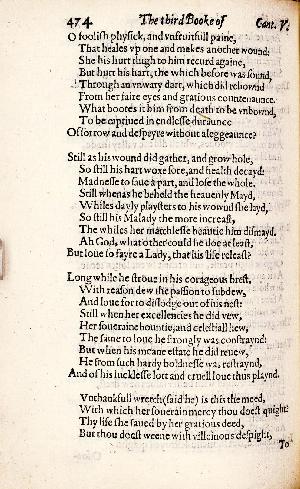 474 The third Booke of Cant. V.
O foolish physick, and vnfruitfull paine,
That heales vp one and makes another wound:
She his hurt thigh to him recurd againe,
But hurt his hart, the which before was sound,
Through an vnwary dart, which did rebownd
From her faire eyes and gratious countenaunce.
What bootes it him from death to be vnbownd,
To be captiued in endlesse duraunce
Of sorrow and despeyre without aleggeaunce?
Still as his wound did gather, and grow hole,
So still his hart woxe sore, and health decayd:
Madnesse to saue a part, and lose the whole.
Still whenas he beheld the heauenly Mayd,
Whiles dayly playsters to his wownd she layd,
So still his Malady the more increast,
The whiles her matchlesse beautie him dismayd.
Ah God, what other could he doe at least,
But loue so fayre a Lady, that his life releast?
Long while he stroue in his corageous brest,
With reason dew the passion to subdew,
And loue for to dislodge out of his nest:
Still when her excellencies he did vew,
Her soueraine bountie, and celestiall hew,
The same to loue he strongly was constraynd:
But when his meane estate he did renew,
He from such hardy boldnesse was restraynd,
And of his lucklesse lott and cruell loue thus playnd.
Vnthankfull wretch (said he) is this the meed,
With which her souerain mercy thou doest quight?
Thy life she saued by her gratious deed,
But thou doest weene with villeinous despight,
To